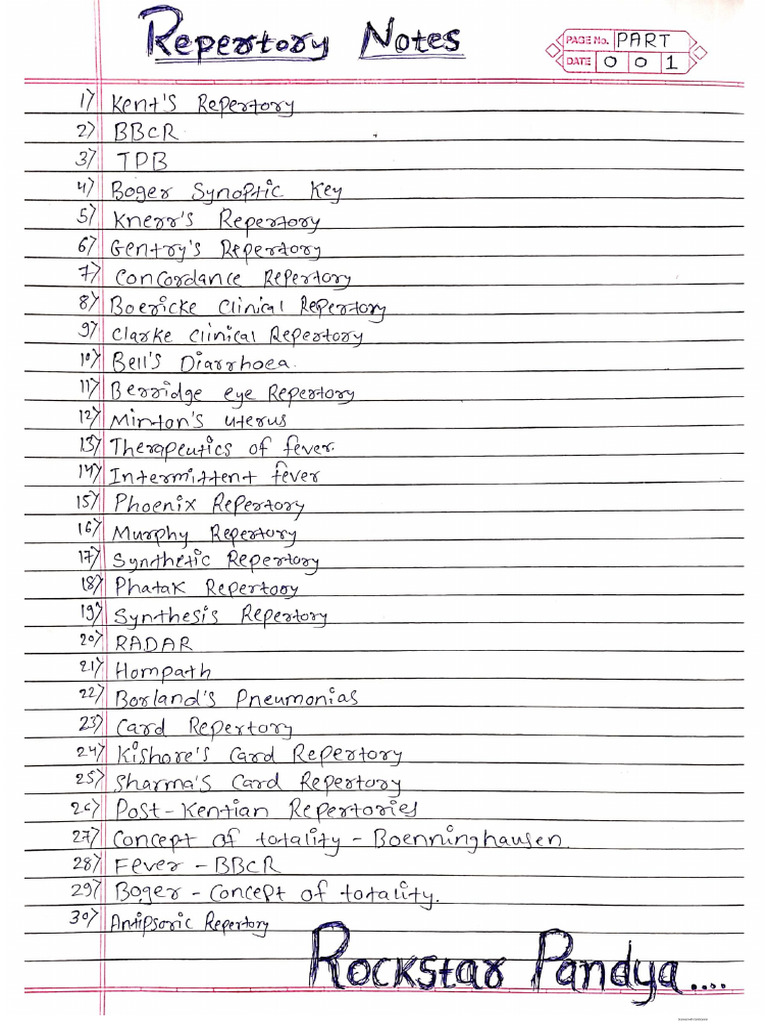 Repertory Notes
PAGE No. PART
DATE 0 0 1
1) Kent's Repertory
2) BBCR
3) TPB
4) Boger Synoptic Key
5) Knerr's Repertory
6) Gentry's Repertory
7) Concordance Repertory
8) Boericke Clinical Repertory
9) Clarke Clinical Repertory
10) Bell's Diarrhoea.
11) Berridge eye Repertory
12) Minton's uterus
13) Therapeutics of fever.
14) Intermittent fever
15) Phoenix Repertory
16) Murphy Repertory
17) Synthetic Repertory
18) Phatak Repertory
19) Synthesis Repertory
20) RADAR
21) Hompath
22) Borland's Pneumonias
23) Card Repertory
24) Kishore's Card Repertory
25) Sharma's Card Repertory
26) Post-Kentian Repertories
27) Concept of totality - Boenninghausen.
28) Fever - BBCR
29) Boger - Concept of totality.
30) Antipsoric Repertory
Rockstar Pandya....